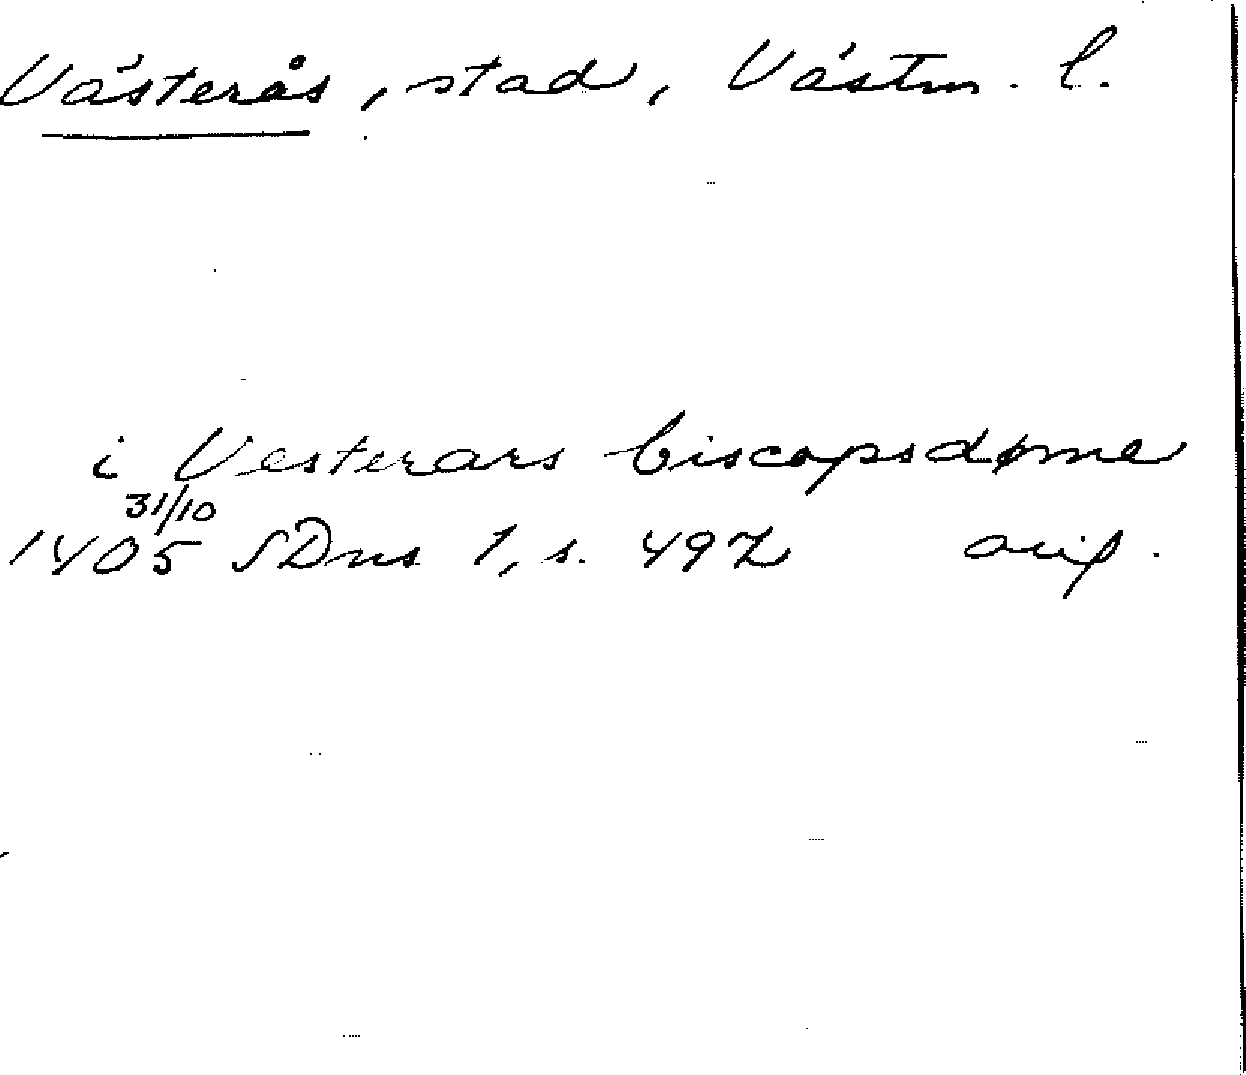 Västerås, stad, Västm. l.
i Vesterars biscopsdøme
31/10
1405 SDns 1, s. 492 avskr.